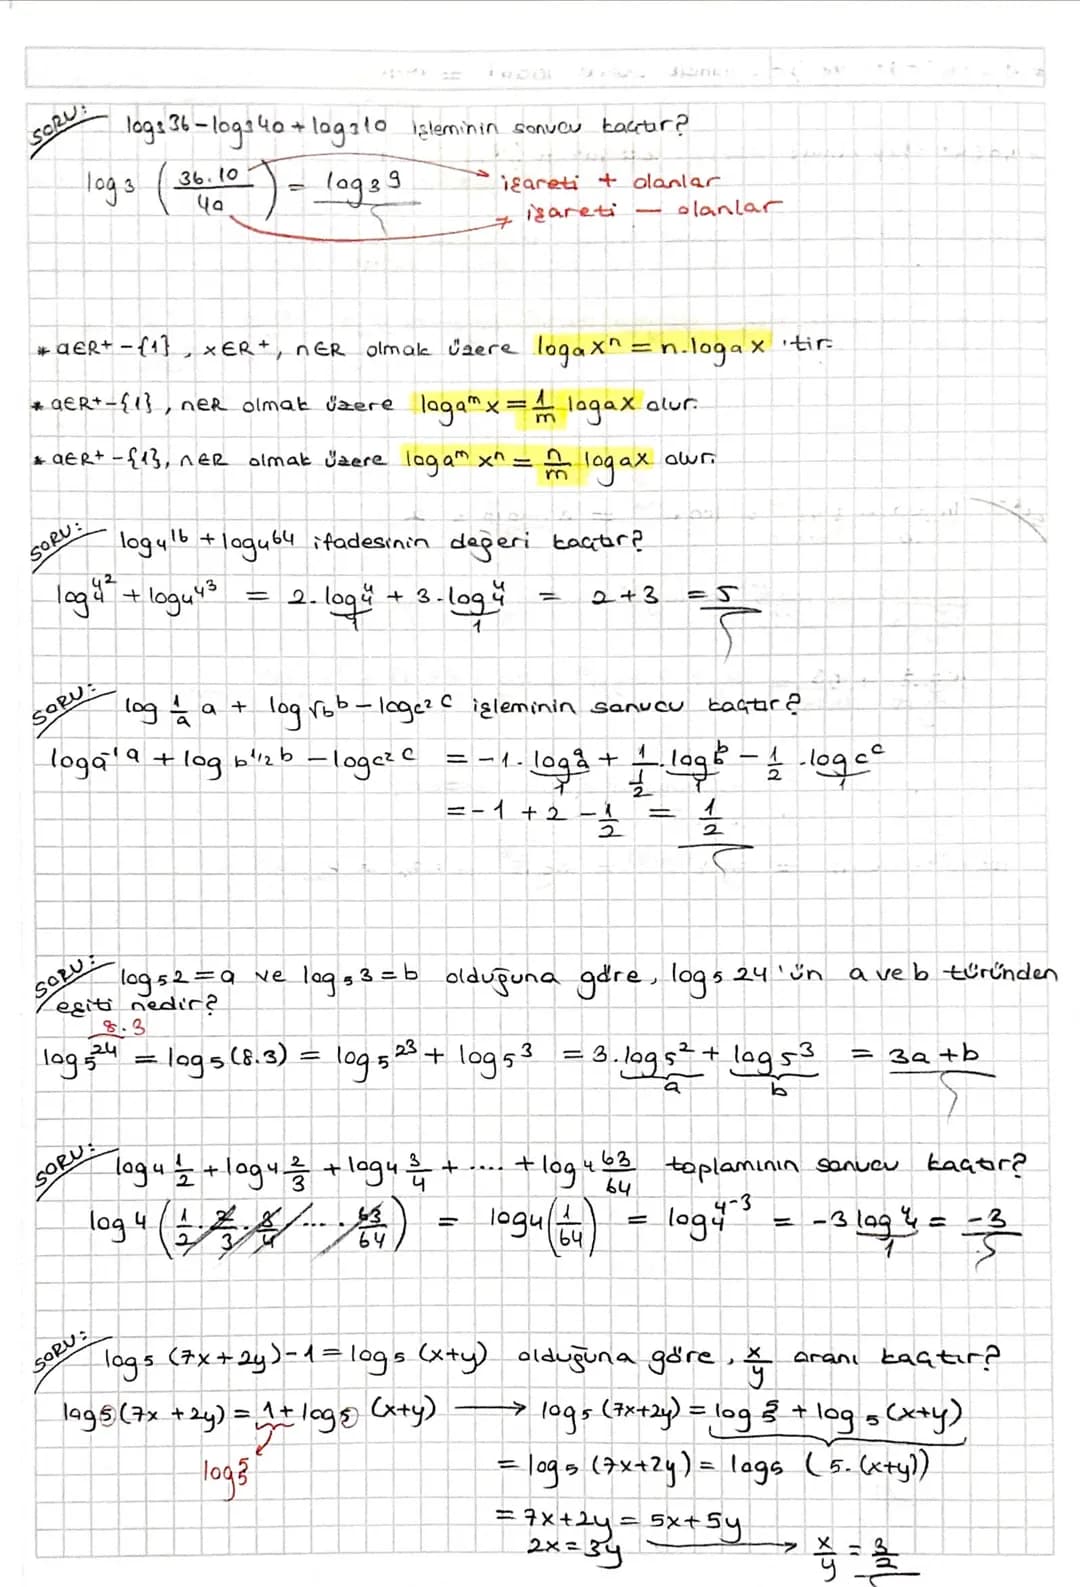 SORU: log₃36 - log₃40 + log₃10 işleminin sonucu kaçtır?
log₃ (36.10/40) = log₃9 → işareti + olanlar
→ işareti - olanlar
* a∈R⁺-{1}, x∈R⁺, n∈R olmak üzere logₐxⁿ = n.logₐx 'tir.
* a∈R⁺-{1}, n∈R olmak üzere log_{a^m} x = 1/m logₐx olur.
* a∈R⁺-{1}, n∈R olmak üzere log_{a^m} xⁿ = n/m logₐx olur.
SORU: log₄16 + log₄64 ifadesinin değeri kaçtır?
log₄4² + log₄4³ = 2.log₄4 + 3.log₄4 = 2+3 = 5
1 1
SORU: log_{1/a} a + log_{√b} b - log_{c²} c işleminin sonucu kaçtır?
log_{a⁻¹} a + log_{b^{1/2}} b - log_{c²} c = -1.logₐa + 1/(1/2).log_b b - 1/2.log_c c
1 1 1
= -1 + 2 - 1/2 = 1/2
SORU: log₅2 = a ve log₅3 = b olduğuna göre, log₅24'ün a ve b türünden
eşiti nedir?
8.3
log₅24 = log₅(8.3) = log₅2³ + log₅3 = 3.log₅2 + log₅3 = 3a+b
a b
SORU: log₄ 1/2 + log₄ 2/3 + log₄ 3/4 + .... + log₄ 63/64 toplamının sonucu kaçtır?
log₄ (1/2 . 2/3 . 3/4 . ... . 63/64) = log₄(1/64) = log₄4⁻³ = -3 log₄4 = -3
1
SORU: log₅ (7x+2y) - 1 = log₅ (x+y) olduğuna göre, x/y oranı kaçtır?
log₅(7x+2y) = 1 + log₅ (x+y) → log₅ (7x+2y) = log₅5 + log₅(x+y)
log₅5 = log₅ (7x+2y) = log₅ (5.(x+y))
= 7x+2y = 5x+5y
2x=3y → x/y = 3/2